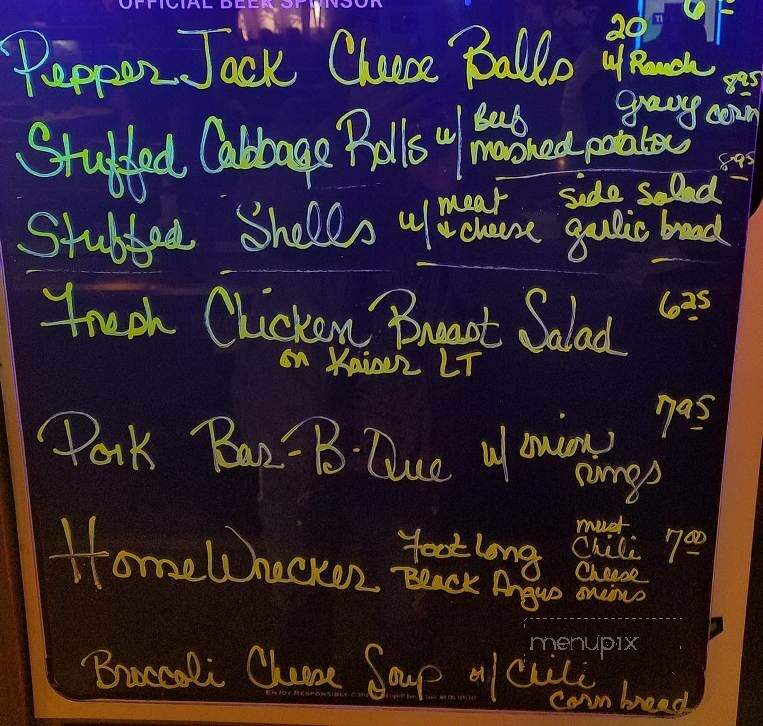 OFFICIAL BEER SPONSOR
6
Pepper Jack Cheese Balls 20 w/ Ranch
8.95
Stuffed Cabbage Rolls w/ Beef gravy corn
mashed potatoes
8.95
Stuffed Shells w/ meat & cheese side salad
garlic bread
Fresh Chicken Breast Salad 6.25
on Kaiser LT
Pork Bar-B-Que w/ onion rings 7.95
HomeWrecker Foot Long Black Angus must Chili Cheese onions 7.00
menupix
Broccoli Cheese Soup or/ Chili
corn bread
ENJOY RESPONSIBLY